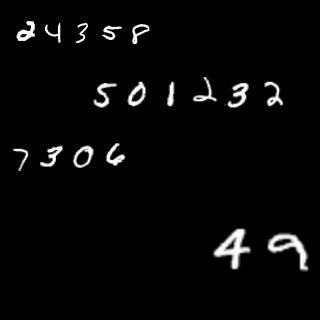 24358
501232
7306
49